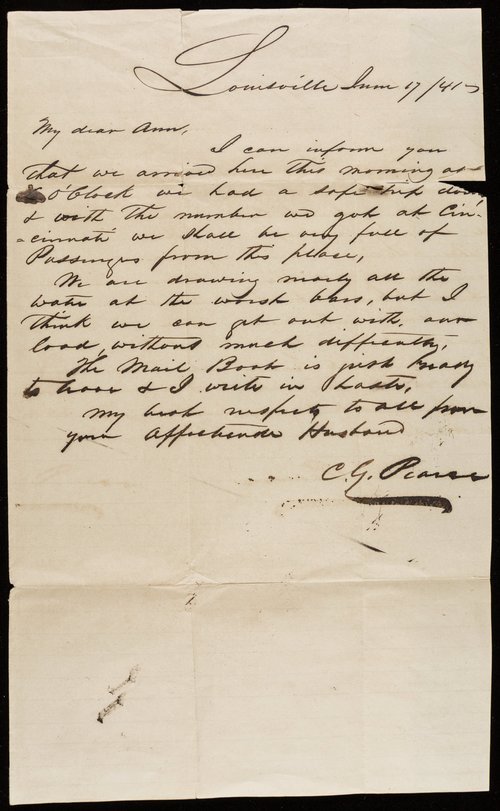 Louisville June 17/41
My dear Ann,
I can inform you
that we arrived here this morning at
O'Clock we had a safe trip down
& with the number we got at Cin-
-cinnati we shall be very full of
Passengers from this place,
We are drawing nearly all the
water at the worst bars, but I
think we can get out with our
load, without much difficulty,
The Mail Boat is just ready
to leave & I write in haste,
My best respects to all from
your Affectionate Husband
C. G. Pearce